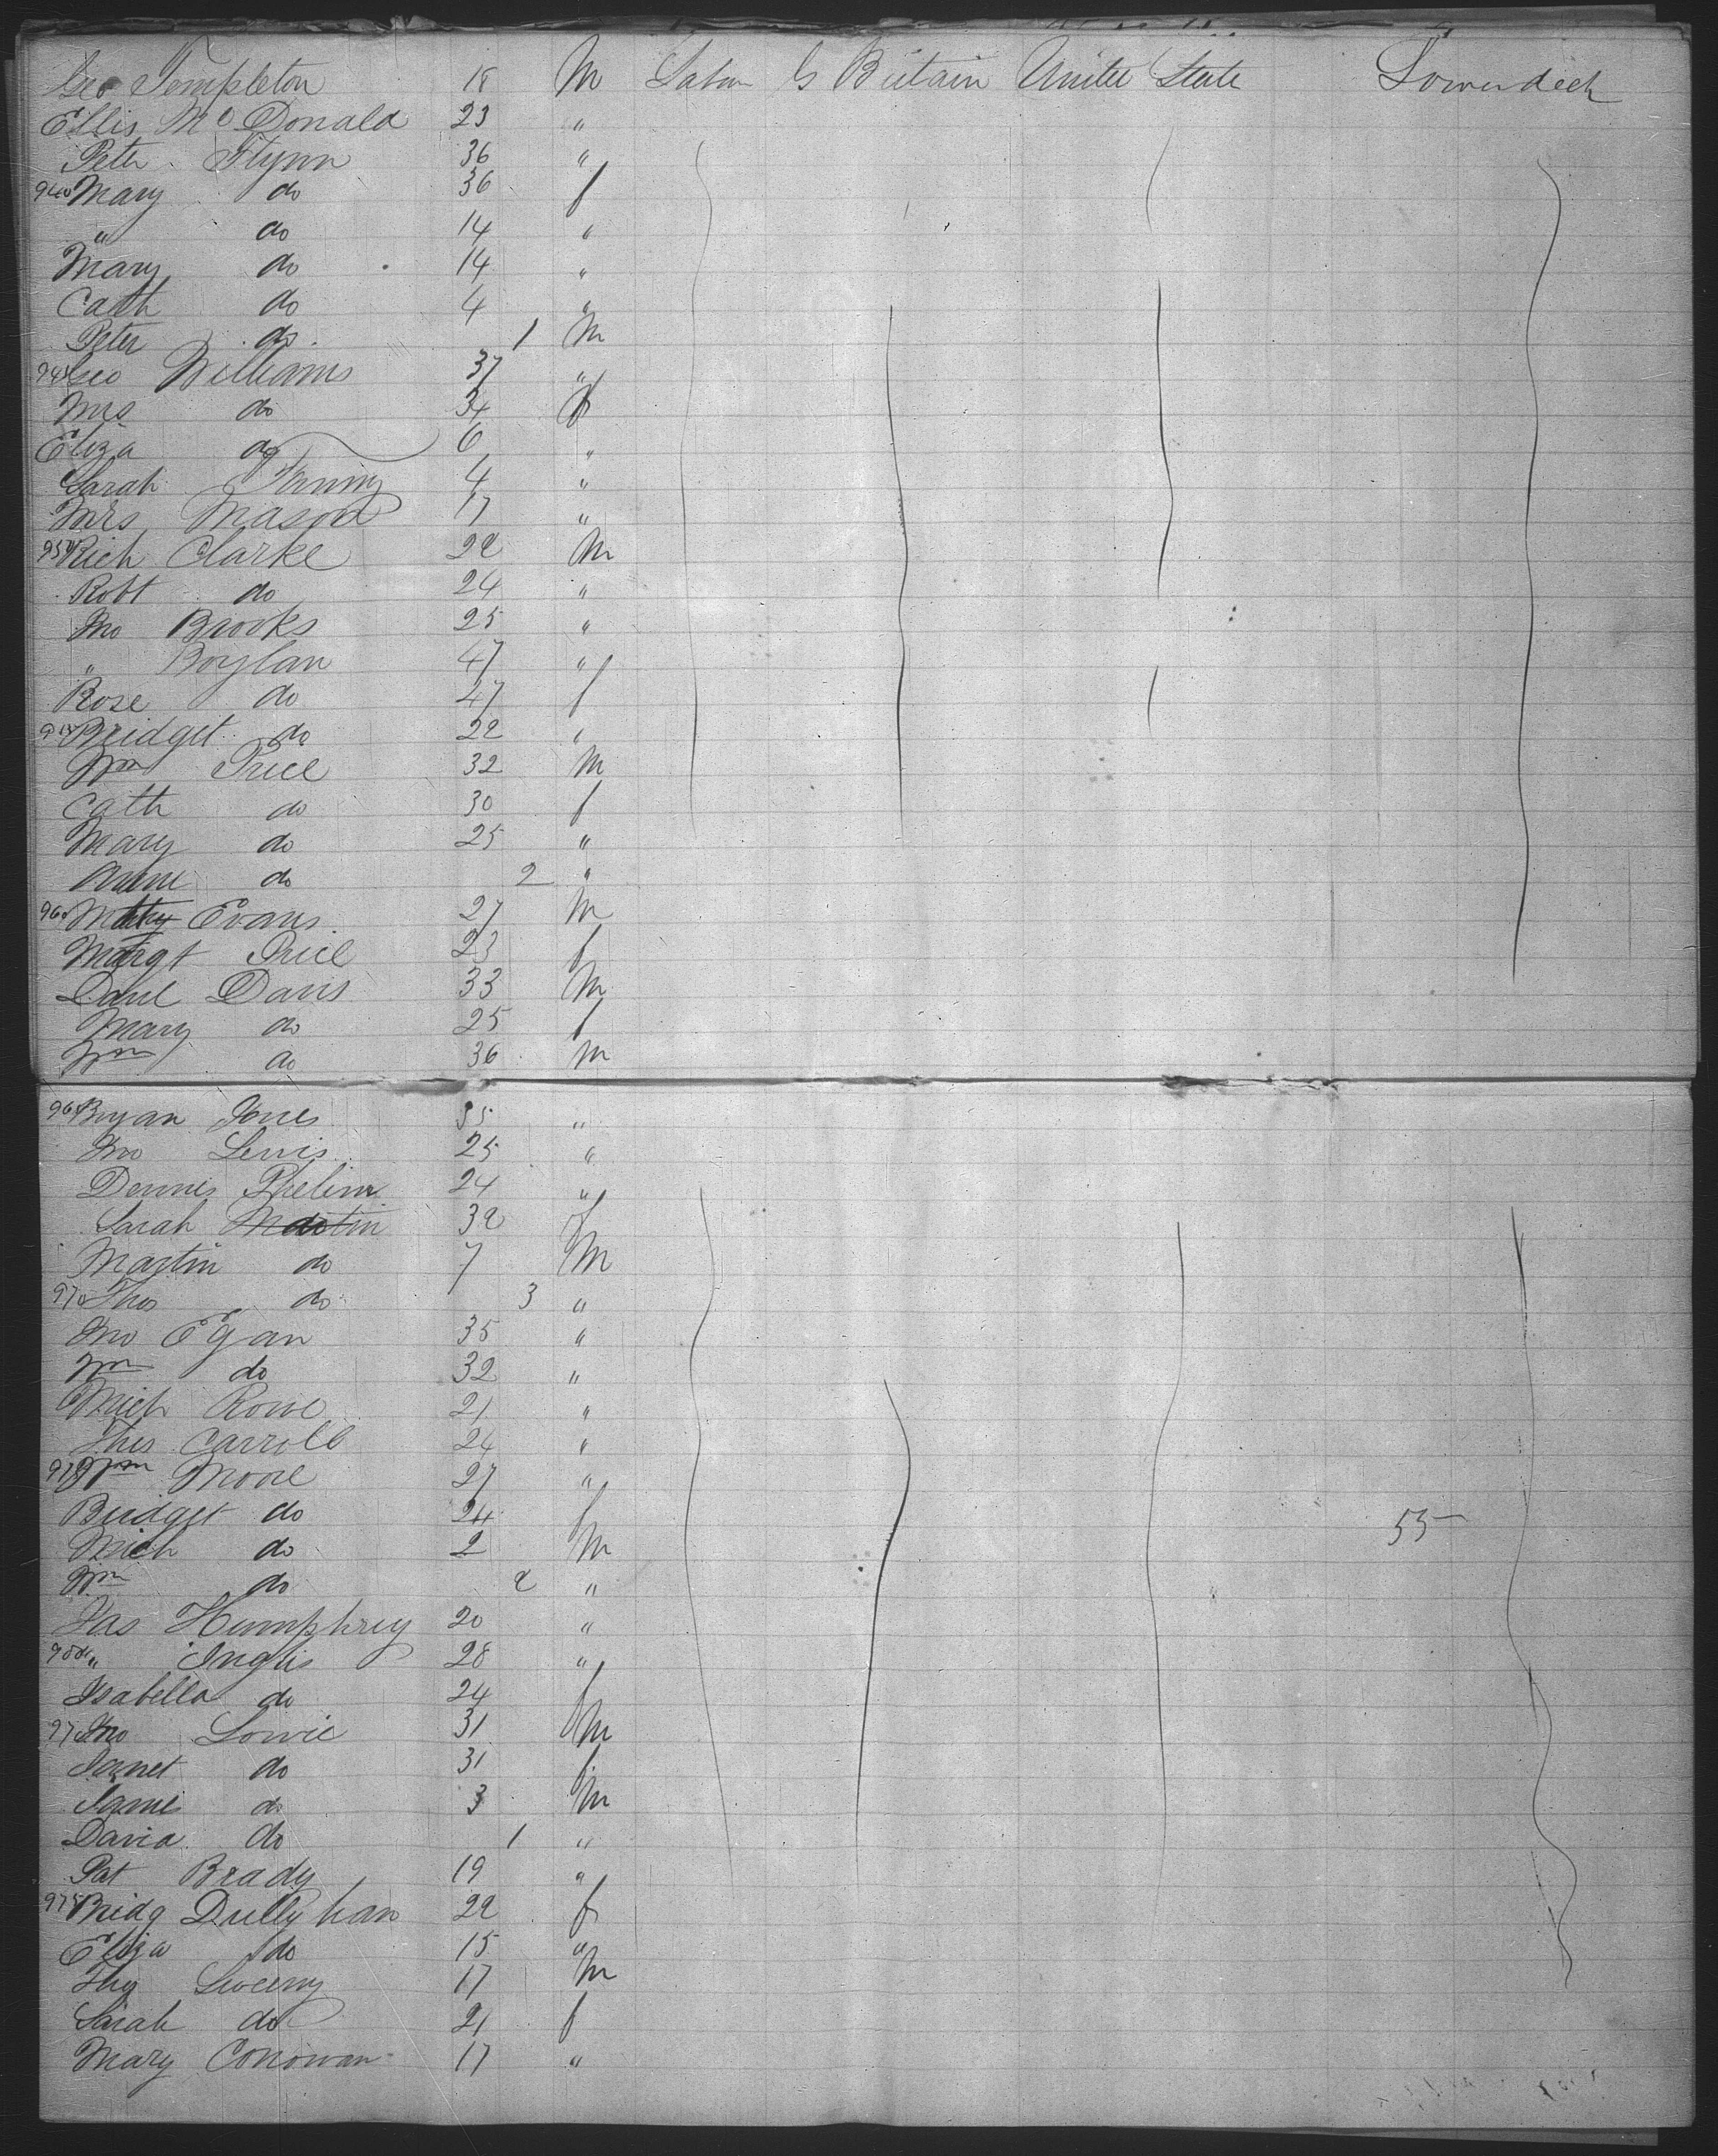 Geo Templeton 18 M Labor G Britain United State Lowerdeck
Ellis McDonald 23 "
Peter Flynn 36 "
940 Mary do 36 f
" do 14 "
Mary do 14 "
Cath do 4 "
Peter do 1 M
945 Geo Williams 37 "
Mrs do 34 f
Eliza do 6 "
Sarah 4 "
Mrs Mason 17 "
950 Rich Clarke 22 M
Robt do 24 "
Jno Brooks 25 "
" Boylan 47 "
Rose do 47 f
Bridget do 22 "
Wm Price 32 M
Cath do 30 f
Mary do 25 "
Anne do 2 "
960 Evans 27 M
Margt Price 23 f
Danl Davis 33 M
Mary do 25 f
Wm do 36 M
965 Bryan Jones 35 "
Jno Lewis 25 "
Dennis Phelim 24 "
Sarah do 32 f
Martin do 7 M
970 Thos do 3 "
Jno Egan 35 "
Wm do 32 "
Mich Rowe 21 "
Thos Carroll 24 "
975 Wm Moore 27 "
Bridget do 24 f 55
Mich do 2 M
Wm do 2 "
Jas Humphrey 20 "
980 " Inglis 28 "
Isabella do 24 f
970 Jno Lowie 31 M
Janet do 31 f
James do 3 M
David do 1 "
Pat Brady 19 "
975 Bridg Dullyhan 22 f
Eliza do 15 "
Thos Sweeny 17 M
Sarah do 21 f
Mary Conowan 17 "